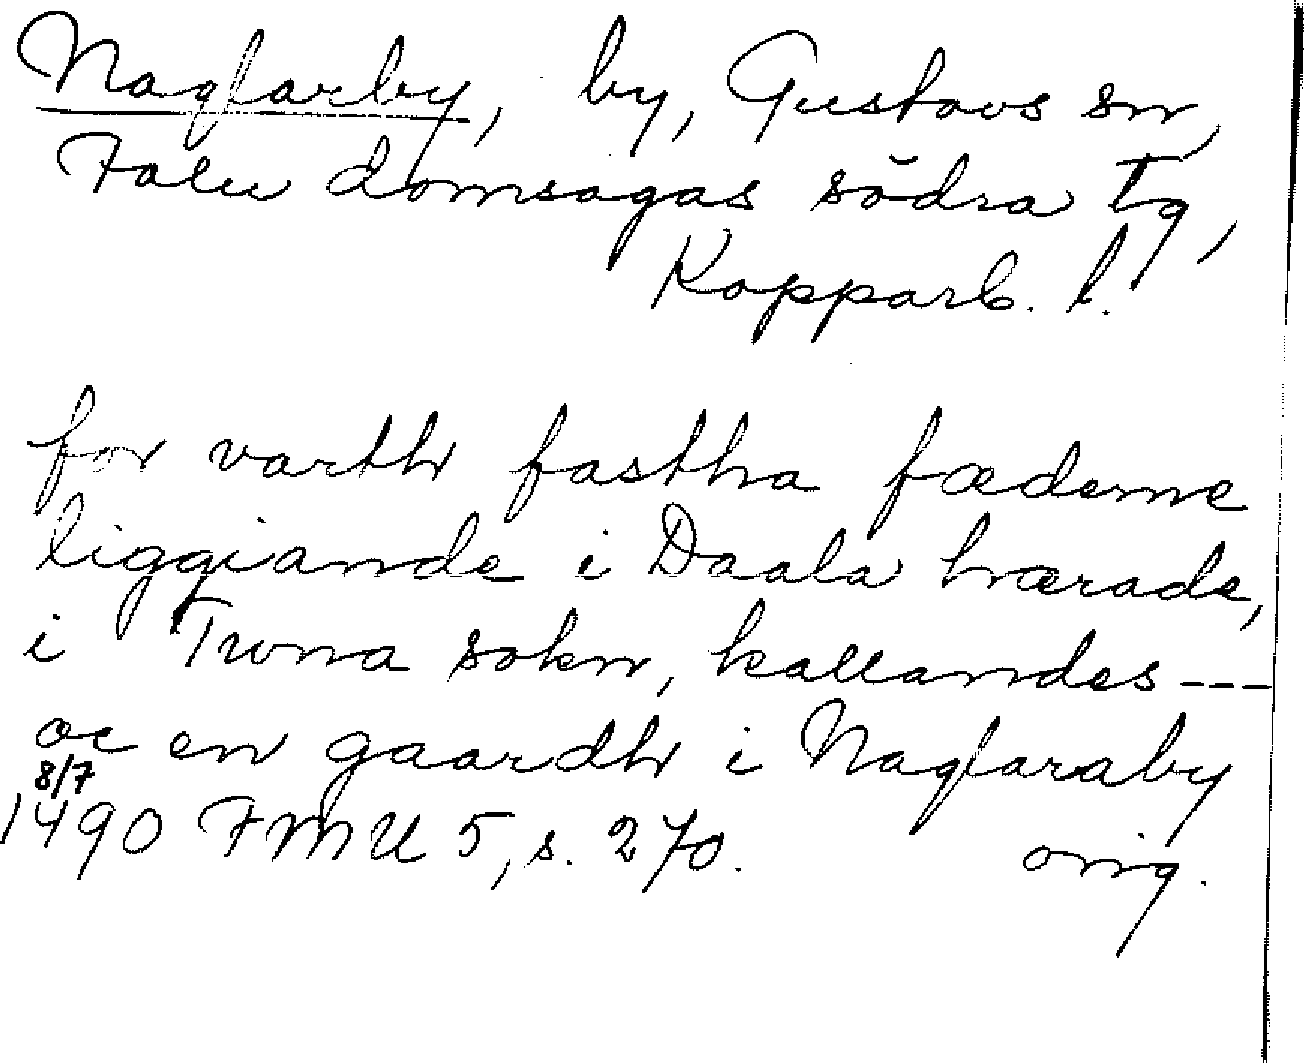 Naglarby, by, Gustavs sn,
Falu domsagas södra tg,
Kopparb. l.
for varth fastha fæderne
liggiande i Daala hærade,
i Twna sokn, kallandes ---
oc en gaardh i Naglaraby
8/7
1490 FMU 5, s. 270. orig.